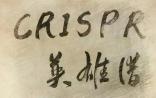 CRISPR
英雄谱